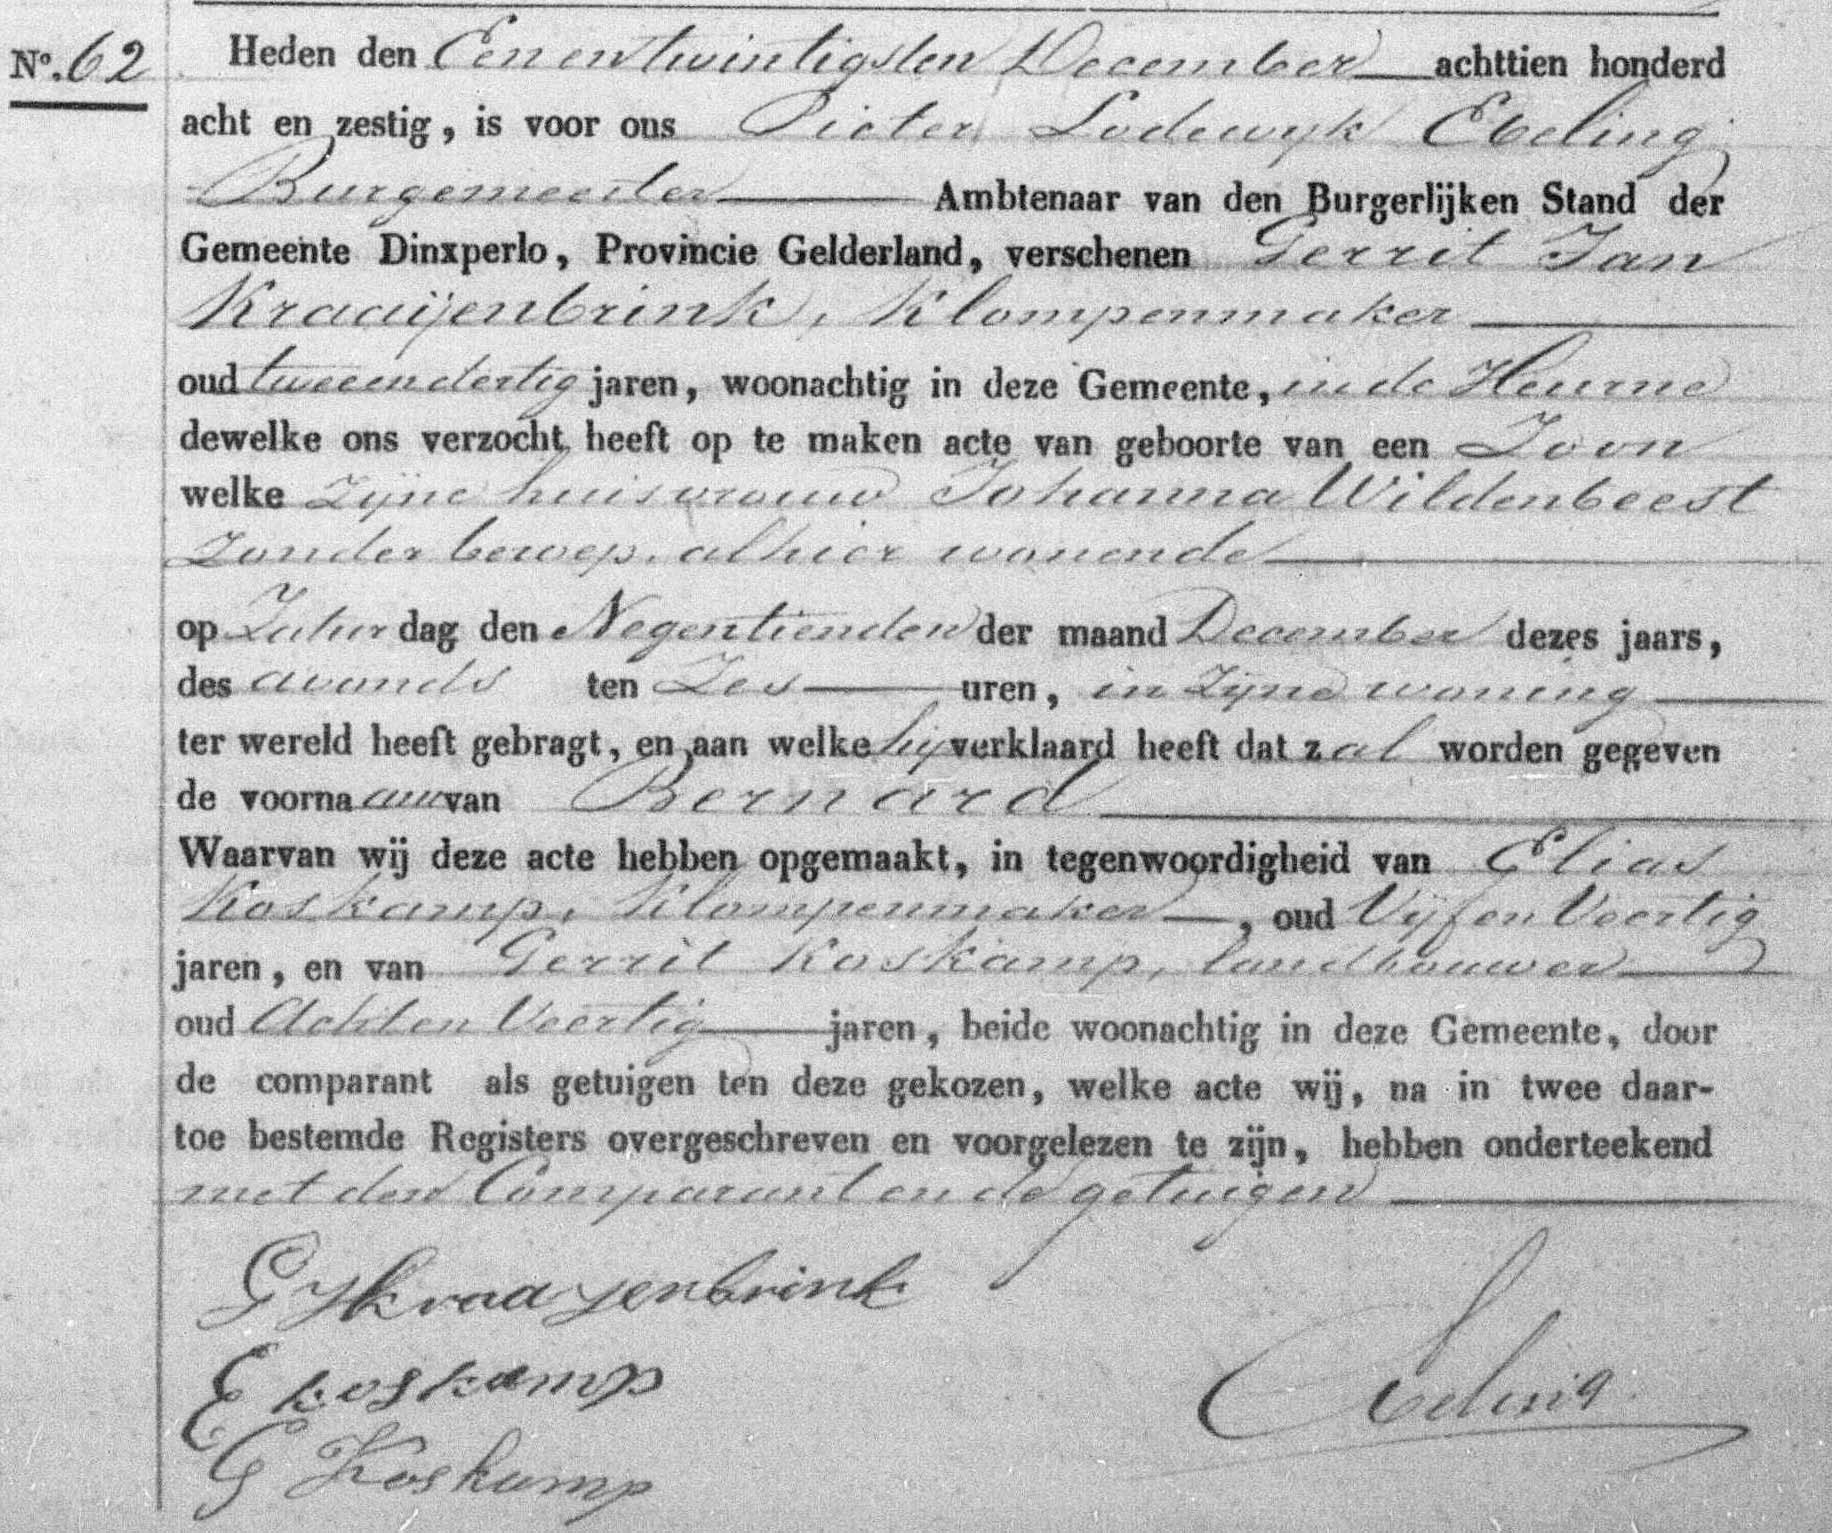 No. 62
Heden den Een en twintigsten December achttien honderd
acht en zestig, is voor ons Pieter Lodewyk Ebeling
Burgemeester Ambtenaar van den Burgerlijken Stand der
Gemeente Dinxperlo, Provincie Gelderland, verschenen Gerrit Jan
Kraaijenbrink, Klompenmaker
oud tweeendertig jaren, woonachtig in deze Gemeente, in de Heurne
dewelke ons verzocht heeft op te maken acte van geboorte van een Zoon
welke zijne huisvrouw Johanna Wildenbeest
zonder beroep, alhier wonende
op Zaturdag den Negentienden der maand December dezes jaars,
des avonds ten Zes uren, in zijne woning
ter wereld heeft gebragt, en aan welke hij verklaard heeft dat zal worden gegeven
de voornaam van Bernard
Waarvan wij deze acte hebben opgemaakt, in tegenwoordigheid van Elias
Koskamp, Klompenmaker, oud Vijf en Veertig
jaren, en van Gerrit Koskamp, landbouwer
oud Achten Veertig jaren, beide woonachtig in deze Gemeente, door
de comparant als getuigen ten deze gekozen, welke acte wij, na in twee daar-
toe bestemde Registers overgeschreven en voorgelezen te zijn, hebben onderteekend
met den Comparant en de getuigen
G J Kraayenbrink
E Koskamp
Ebeling
G Koskamp